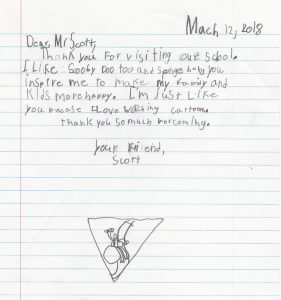 Mach 12, 2018
Dear Mr Scott,
Thank you for visiting our school.
I Like Sooby Doo too and sponge bob. you
inspire me to make my family and
Kids more happy. I'm Just Like
you becase I Love watching cartoons.
thank you so much for coming.
your friend,
Scott